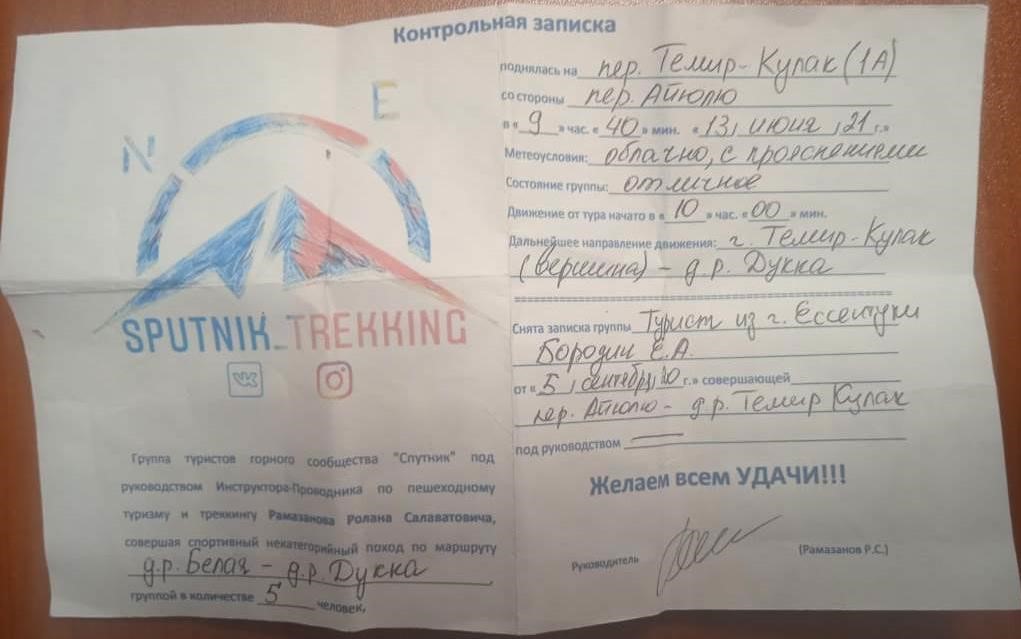 N
E
SPUTNIK_TREKKING
Группа туристов горного сообщества "Спутник" под
руководством Инструктора-Проводника по пешеходному
туризму и треккингу Рамазанова Ролана Салаватовича,
совершая спортивный некатегорийный поход по маршруту
д.р. Белая - д.р. Дукка
группой в количестве 5 человек,
Контрольная записка
поднялась на пер. Темир-Кулак (1А)
со стороны пер. Айюлю
в « 9 » час. « 40 » мин. « 13, июня , 21 г.»
Метеоусловия: облачно, с прояснениями
Состояние группы: отличное
Движение от тура начато в « 10 » час. « 00 » мин.
Дальнейшее направление движения: г. Темир-Кулак
(вершина) - д.р. Дукка
Снята записка группы Турист из г. Ессентуки
Бородин Е.А.
от « 5 , сентября, 20 г.» совершающей
пер. Айюлю - д.р. Темир Кулак
под руководством —
Желаем всем УДАЧИ!!!
Руководитель (Рамазанов Р.С.)